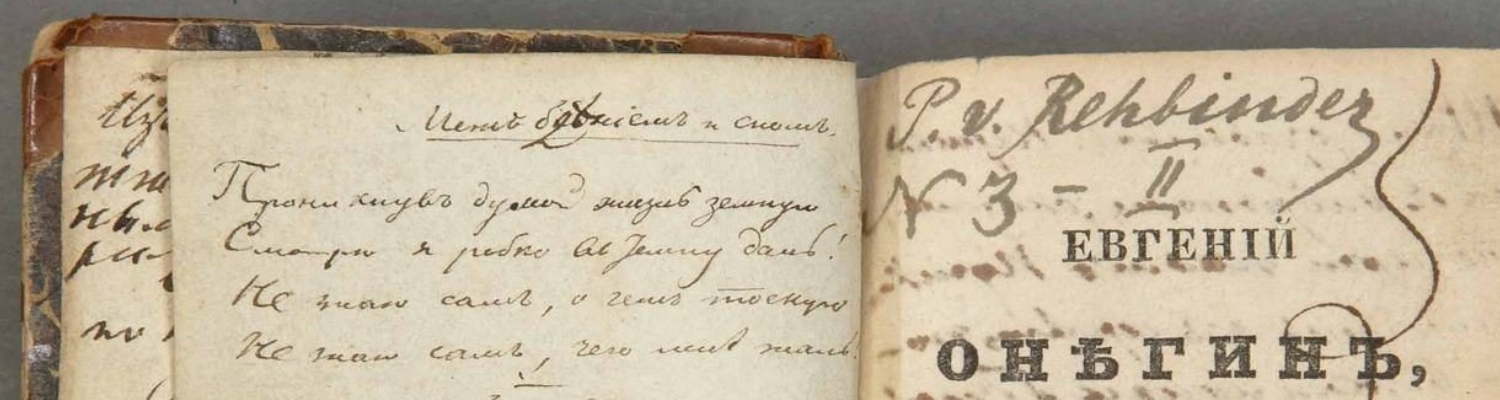 Межъ бытіемъ и сномъ.
Проникнувъ думой жизнь земную
Смотрю я робко въ земну даль!
Не знаю самъ, о чемъ тоскую
Не знаю самъ, чего мнѣ жаль!
P. v. Rehbinder
N 3 - II
ЕВГЕНІЙ
ОНѢГИНЪ,